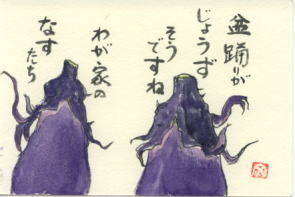 盆踊りが
じょうず
そう
ですね
わが家の
なす
たち